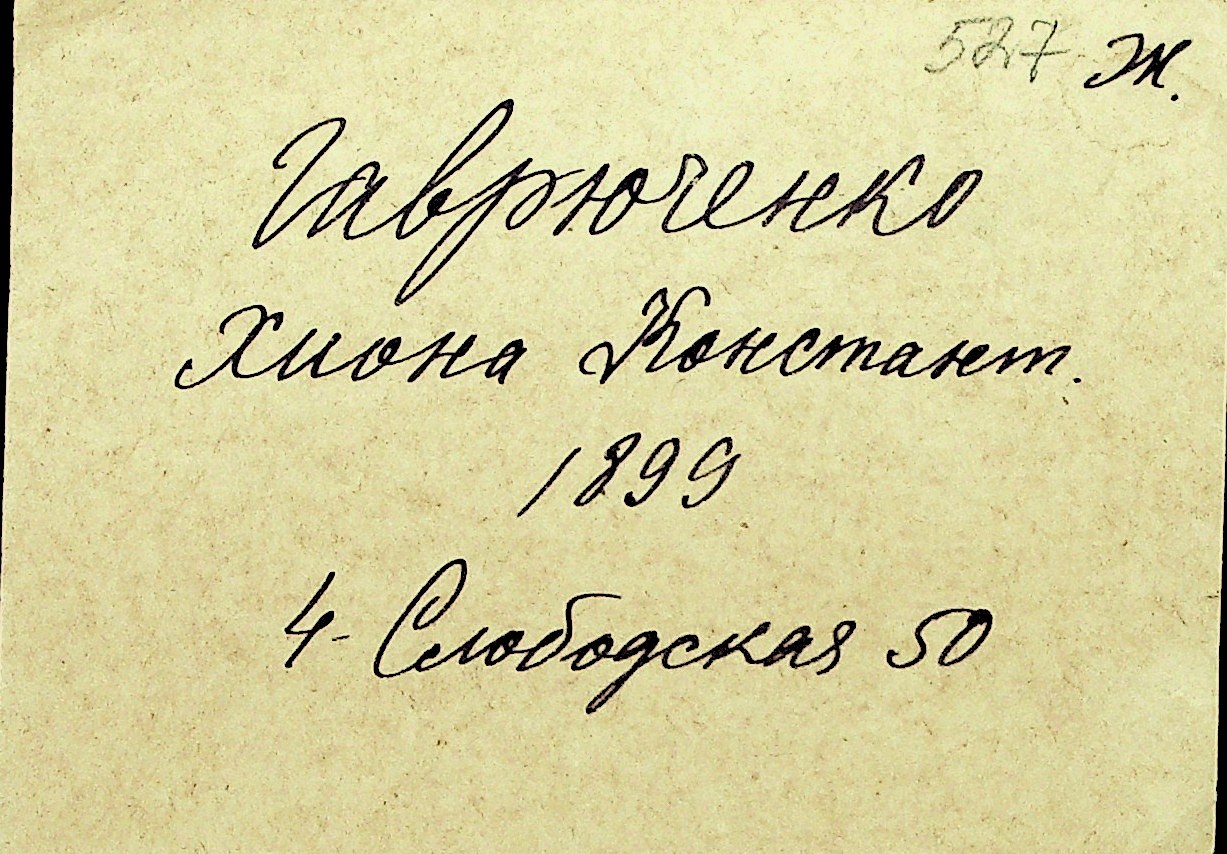 527 Ж.
Гаврюченко
Хиона Констант .
1899
4- Слободская 50